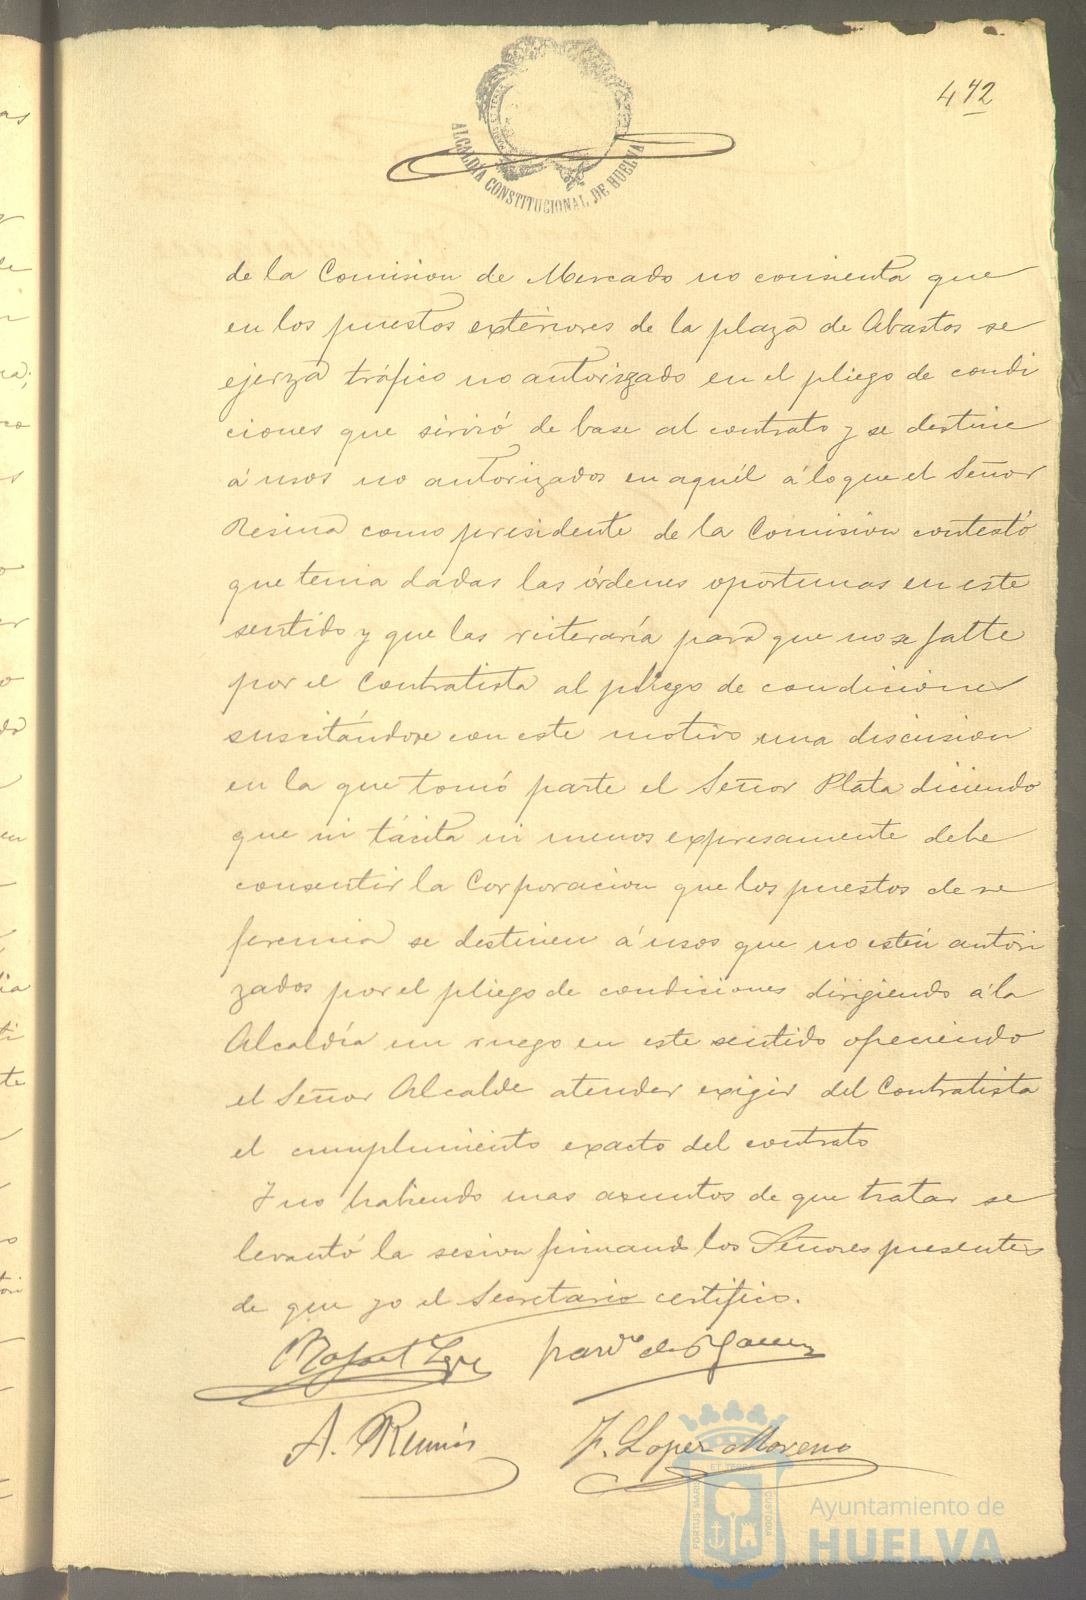 472
ALCALDÍA CONSTITUCIONAL DE HUELVA
de la Comision de Mercado no consienta que
en los puestos exteriores de la plaza de Abastos se
ejerza tráfico no autorizado en el pliego de condi
ciones que sirvió de base al contrato y se destine
á usos no autorizados en aquél á lo que el Señor
Resina como presidente de la Comision contestó
que tenia dadas las órdenes oportunas en este
sentido y que las reiteraría para que no se falte
por el Contratista al pliego de condiciones
suscitándose con este motivo una discusion
en la que tomó parte el Señor Plata diciendo
que ni tácita ni menos expresamente debe
consentir la Corporacion que los puestos de re
ferencia se destinen á usos que no estén autori
zados por el pliego de condiciones dirigiendo á la
Alcaldía un ruego en este sentido ofreciendo
el Señor Alcalde atender exigir del Contratista
el cumplimiento exacto del contrato
Y no habiendo mas asuntos de que tratar se
levantó la sesion firmando los Señores presentes
de que yo el Secretario certifico.
Rafael
A.
F. Lopez Moreno
PORTUS MARIS ET TERRE CUSTODIA
Ayuntamiento de
HUELVA